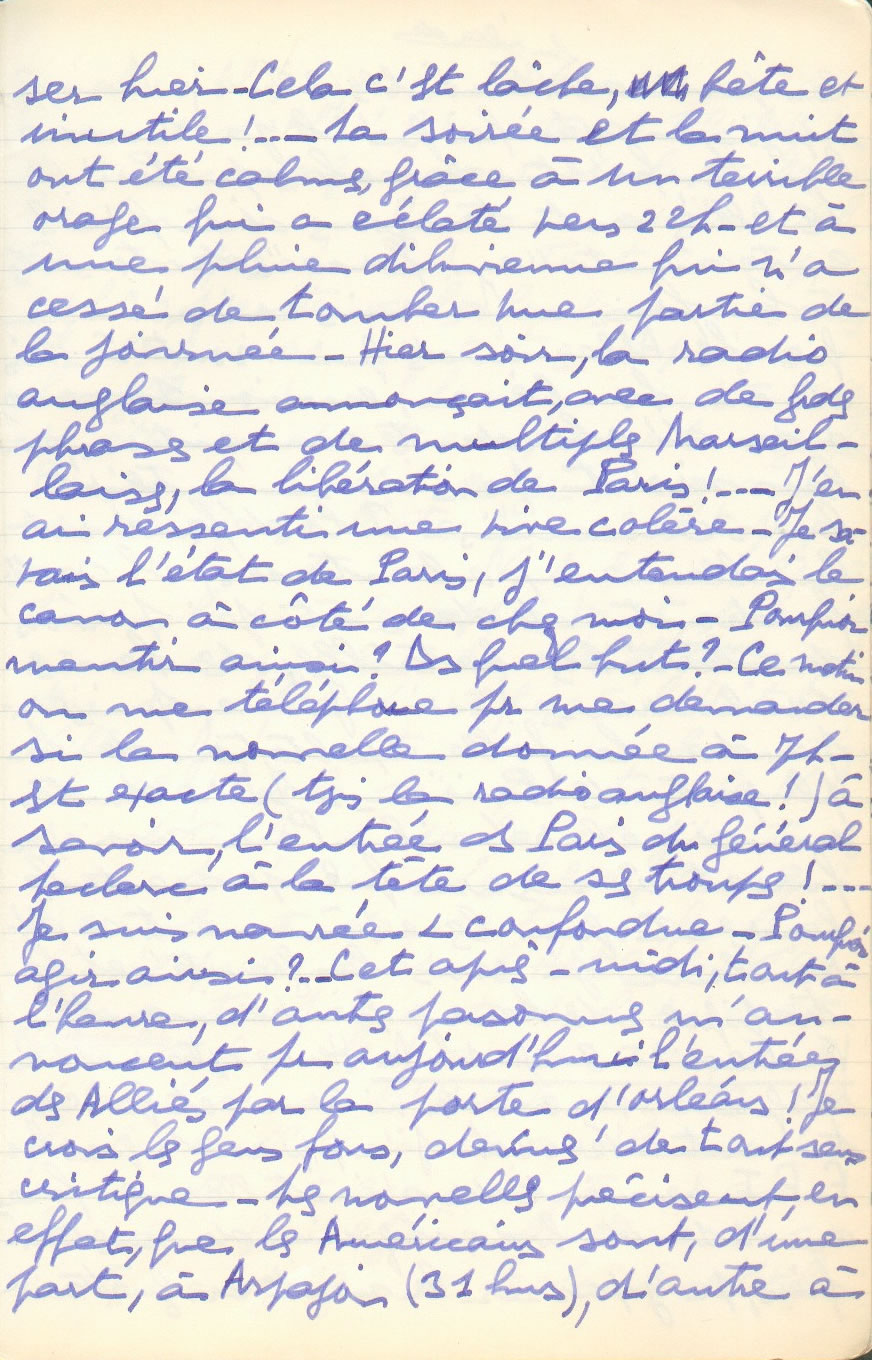 ser hier - Cela c'est lâche, bête et
inutile !... La soirée et la nuit
ont été calmes, grâce à un terrible
orage qui a éclaté vers 22h - et à
une pluie diluvienne qui n'a
cessé de tomber une partie de
la journée - Hier soir, la radio
anglaise annonçait, avec de gdes
phrases et de multiples Marseil-
laises, la libération de Paris !... J'en
ai ressenti une vive colère - Je sa-
vais l'état de Paris, j'entendais le
canon à côté de chez moi - Pourquoi
mentir ainsi ? Ds quel but ? - Ce matin
on me téléphone pr me demander
si la nouvelle donnée à 7h -
est exacte (tjs la radio anglaise !) à
savoir, l'entrée ds Paris du général
Leclerc à la tête de ses troupes !...
Je suis navrée & confondue - Pourquoi
agir ainsi ?.. Cet après-midi, tout à
l'heure, d'autres personnes m'an-
noncent pr aujourd'hui l'entrée
des Alliés par la porte d'Orléans ! Je
crois les gens fous, dénués de tout sens
critique - Les nouvelles précisent, en
effet, que les Américains sont, d'une
part, à Arpajon (31 kms), d'autre à